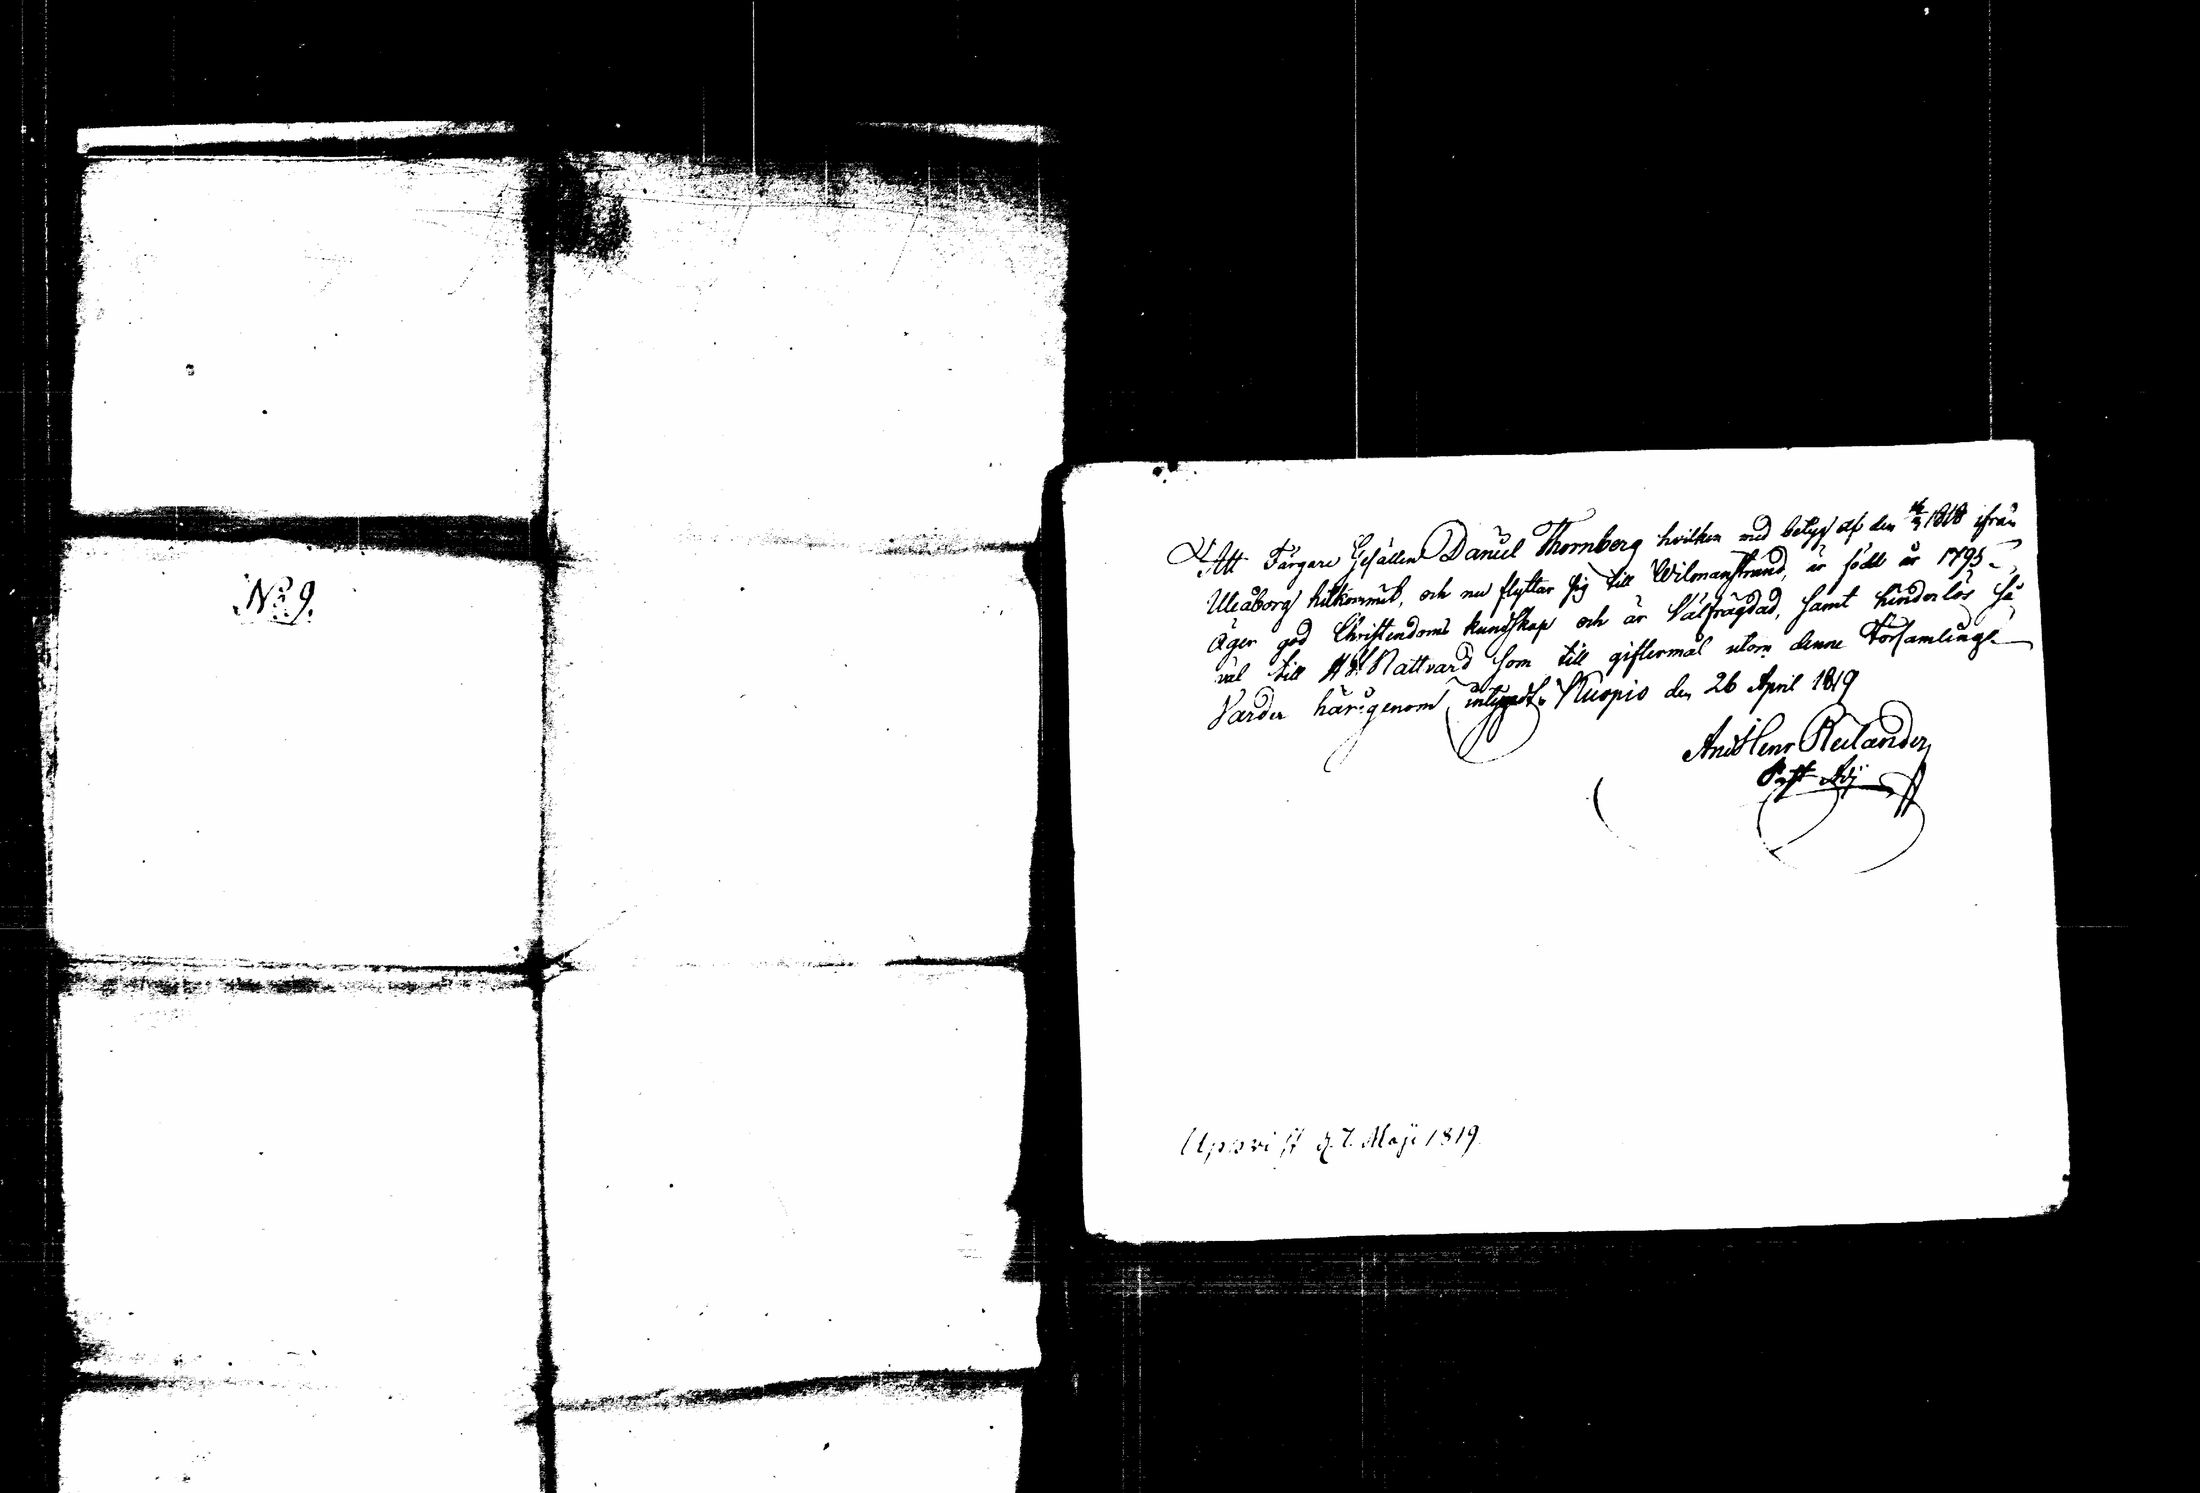 No. 9.
Att Färgare Gesällen Daniel Thornberg hvilken med betyg af den 1818 ifrån
Uleåborg hitkommit, och nu flyttar sig till Wilmanstrand, är född år 1795
äger god Christendoms kundskap och är Välfrägdad, samt hinderlös så
väl till H. H. Nattvard som till giftermål utom denne Församlings
Varder härigenom intygadt. Kuopio den 26 April 1819
And Henr Relander
Past Adj
Upvist d. 7. Maji 1819.